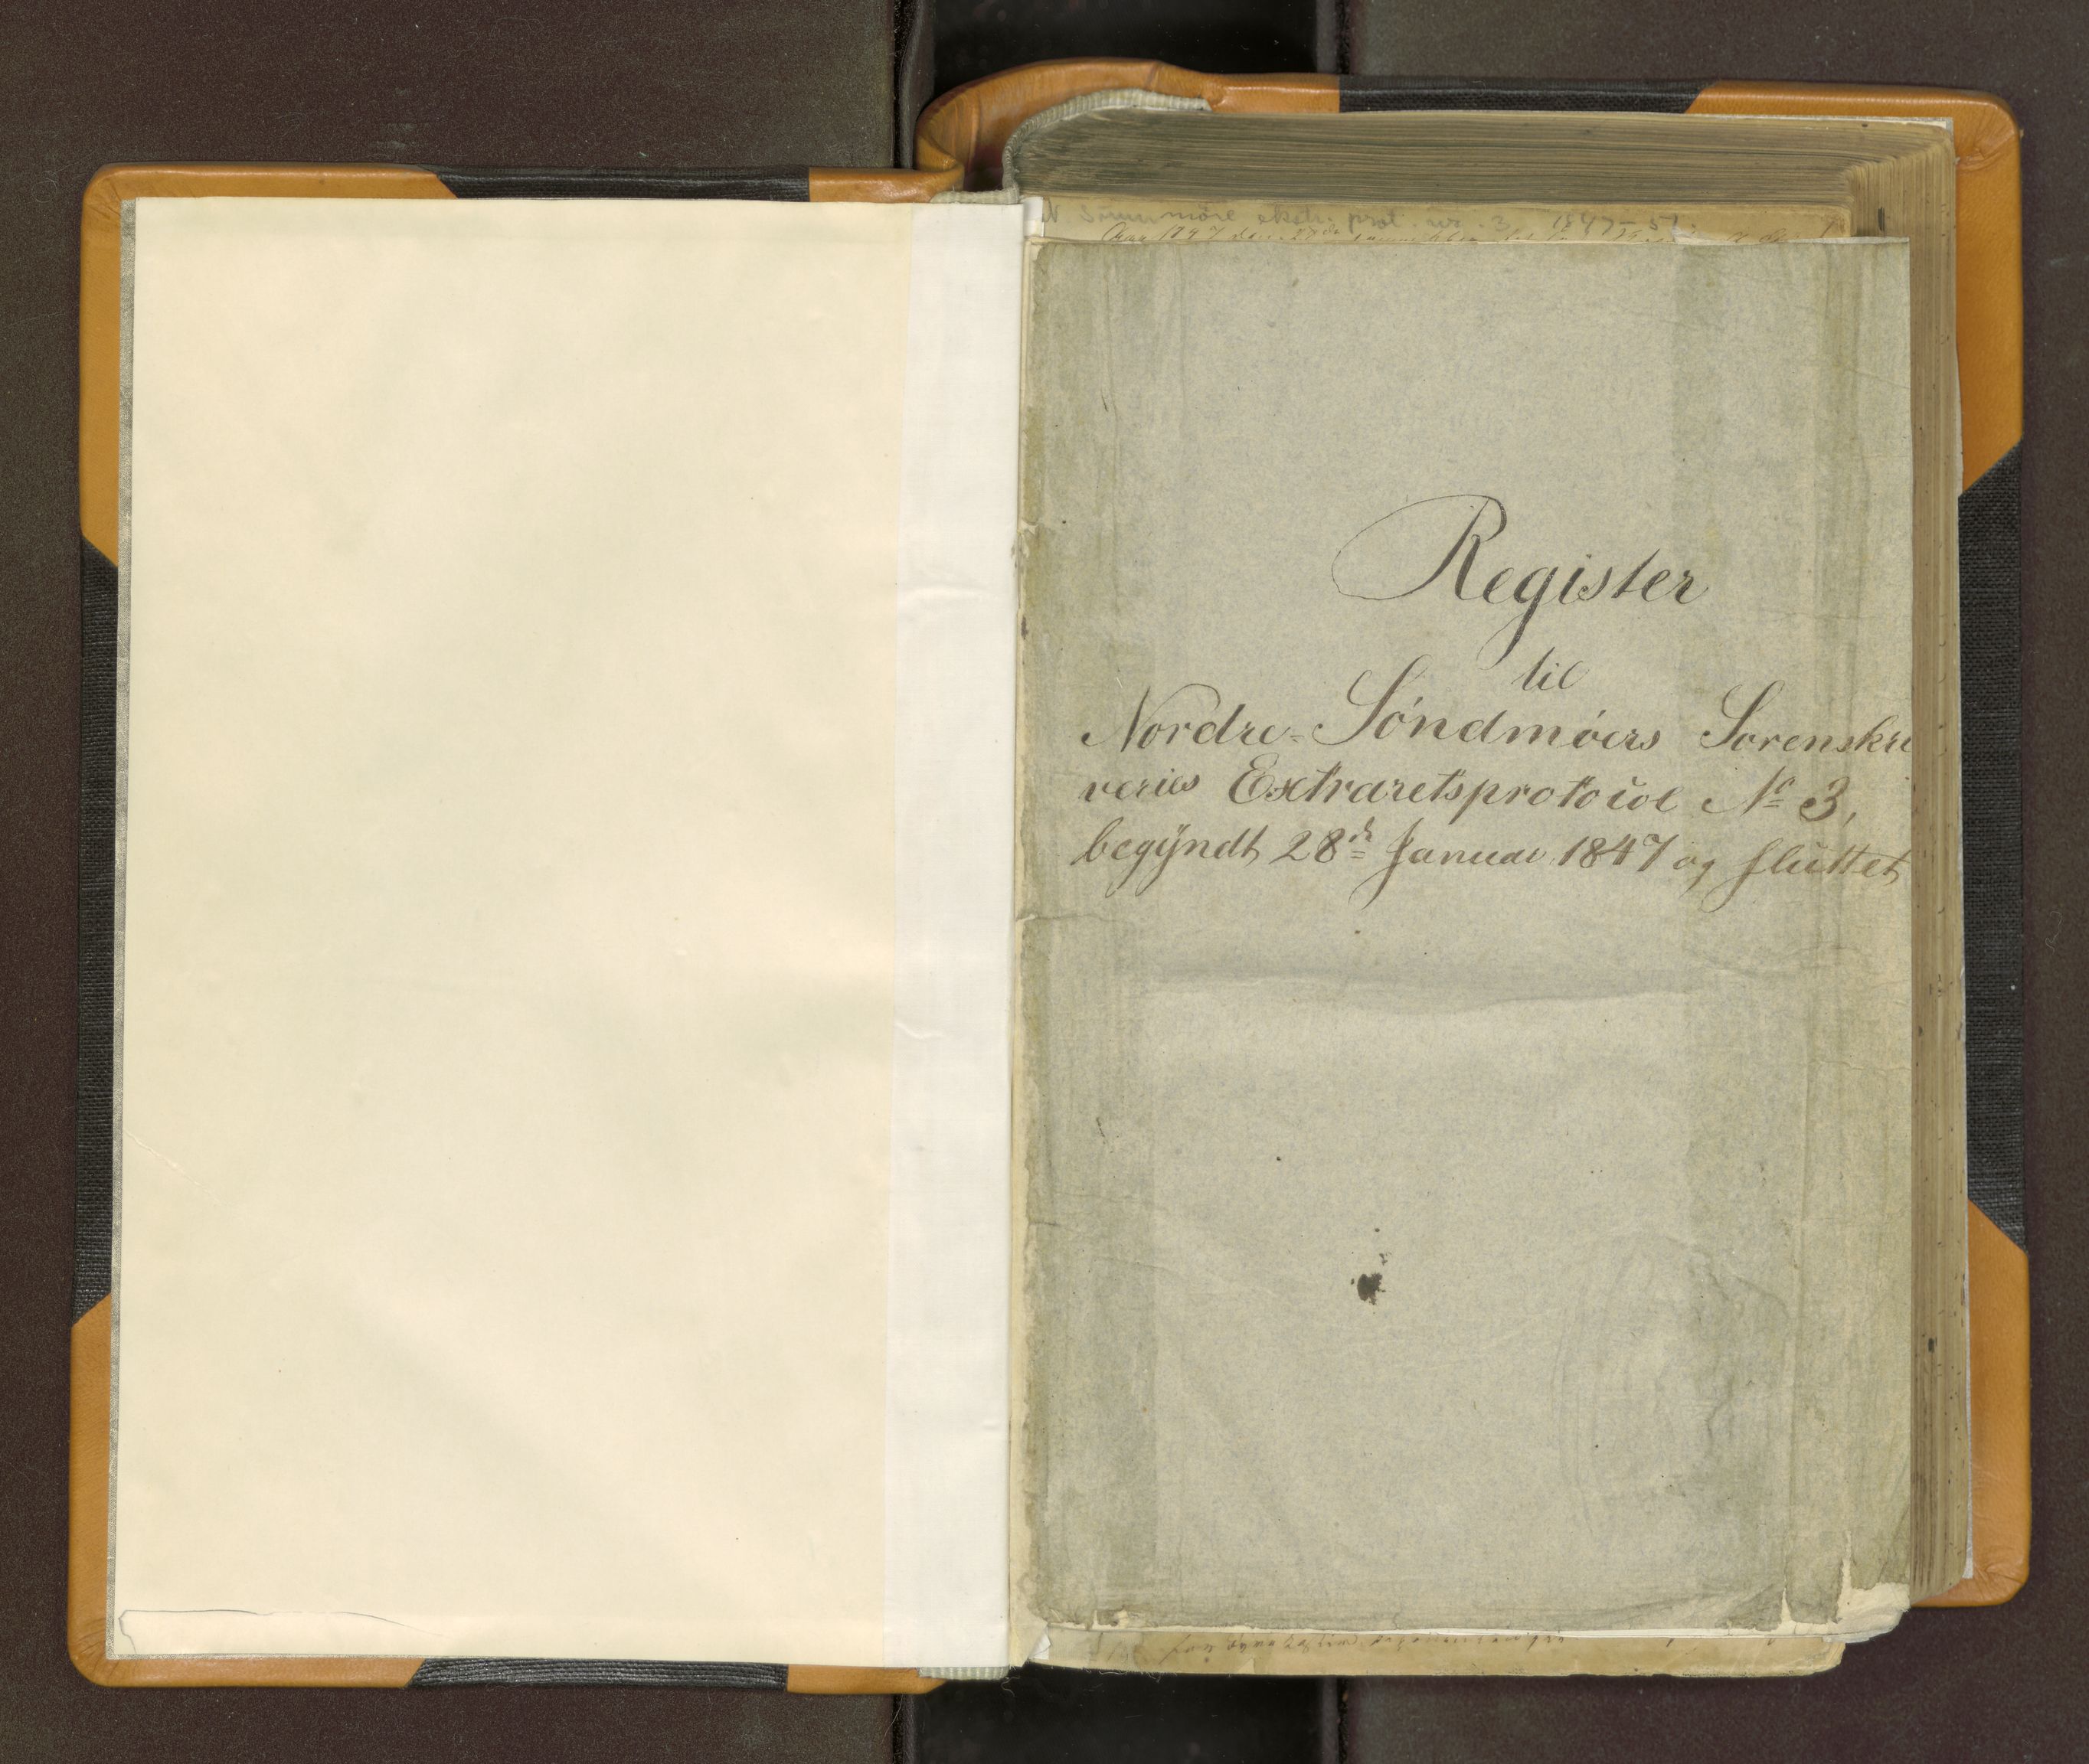 N. Sunnmøre ekstr. prot. nr. 3 1847-51
Register
til
Nordre=Søndmøers Sorenskri
veries Extraretsprotocol No 3,
begyndt 28de Januar 1847 og sluttet